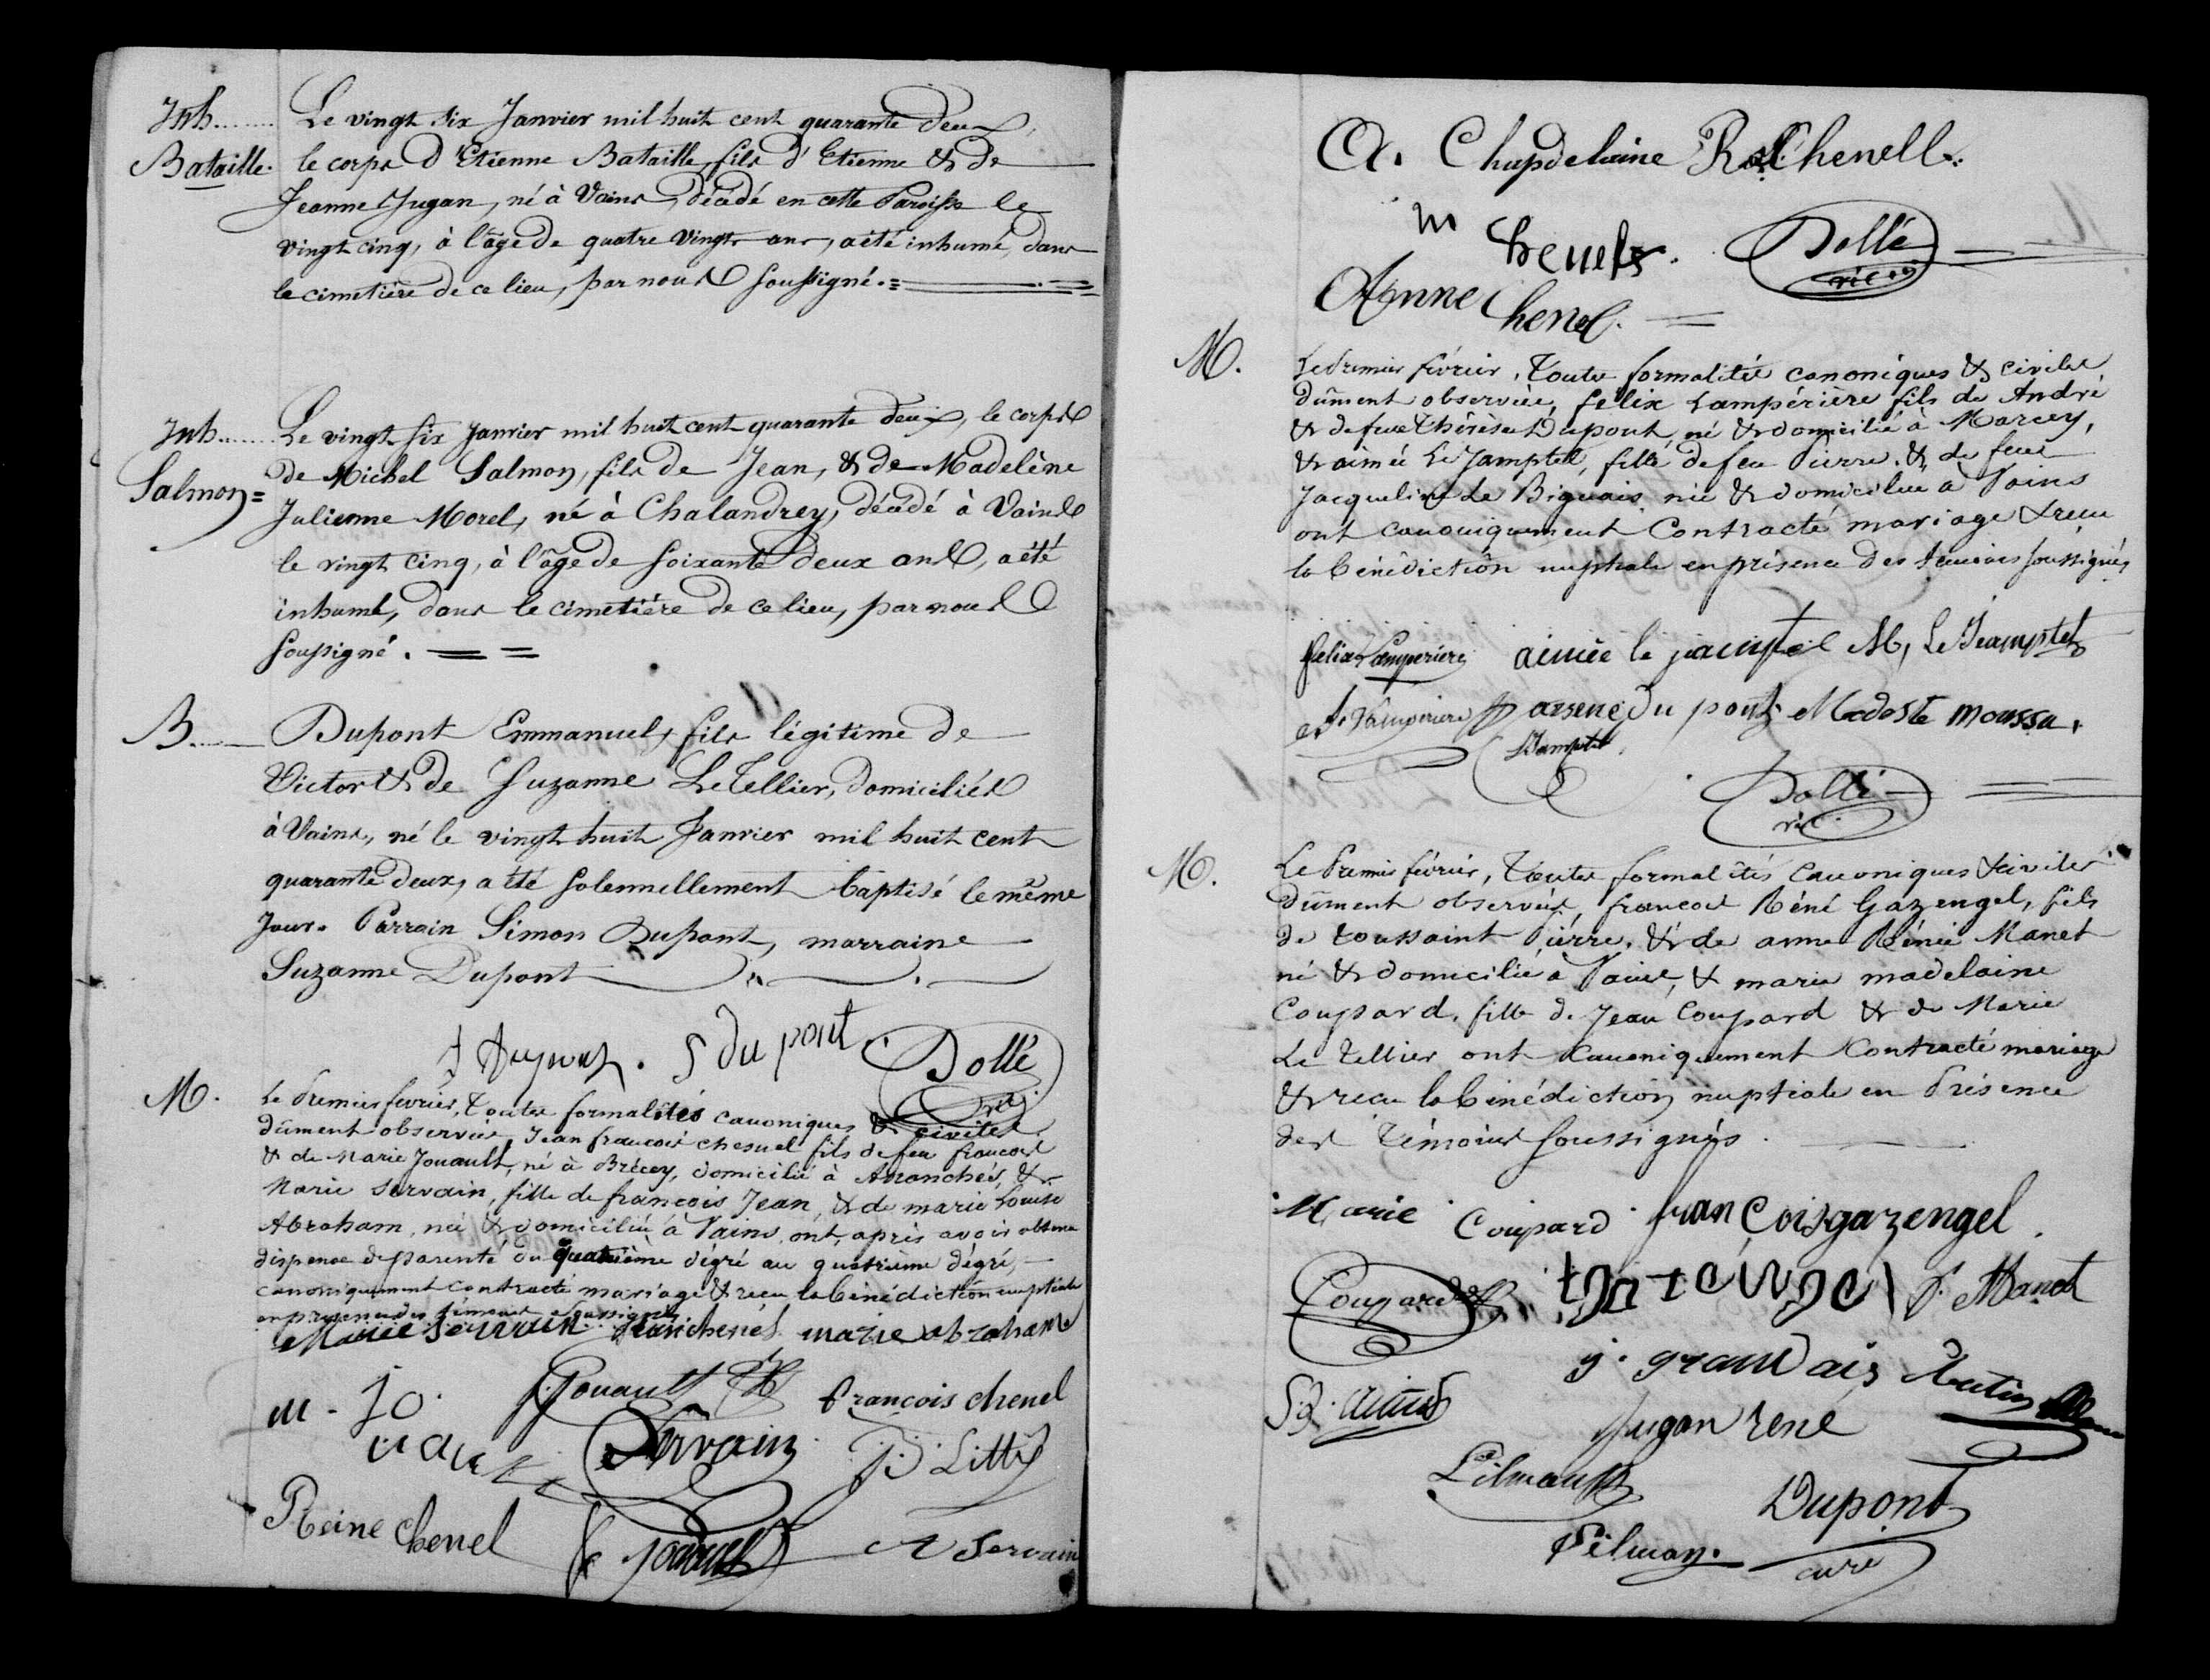 Inh......
Bataille.
Le vingt six Janvier mil huit cent quarante deux,
le corps d'Etienne Bataille, fils d'Etienne & de
Jeanne Jugan, né à Vains, décédé en cette Paroisse le
vingt cinq, à l'âge de quatre vingts ans, a été inhumé, dans
le cimetière de ce lieu, par nous soussigné.
Inh......
Salmon=
Le vingt six Janvier mil huit cent quarante deux, le corps
de Michel Salmon, fils de Jean, & de Madelène
Julienne Morel, né à Chalandrey, décédé à Vains
le vingt cinq, à l'âge de soixante deux ans, a été
inhumé, dans le cimetière de ce lieu, par nous
soussigné.
B.
Dupont Emmanuel, fils légitime de
Victor & de Suzanne LeTellier, domiciliés
à Vains, né le vingt huit Janvier mil huit cent
quarante deux, a été solennellement baptisé le même
Jour. Parrain Simon Dupont, marraine
Suzanne Dupont
S du pont Dollé
vic.
M.
Le Premier fevrier, Toutes formalités canoniques & civiles
dûment observées, Jean francois chesnel fils de feu francois
& de Marie Jouault, né à Brécey, domicilié à Avranches, &
Marie Servain, fille de françois Jean, & de marie Louise
Abraham, née & domiciliée à Vains, ont, après avoir obtenu
dispense de parenté du quatrième dégré au quatrième dégré,
canoniquement contracté mariage & recu la bénédiction nuptiale
en présence des témoins soussignés
Marie Servain Jean chenel marie abraham
m. jo
uault
J. Jouault françois chenel
Servain Litté
Reine chenel
jouault A Servain
A. Chapdelaine R. Chenell
m
henel Dollé
vic.
Anne
Chenel.
M.
Le Premier février, Toutes formalités canoniques & civiles
dûment observées, felix Lampérière fils de André
& de feue Thérèse Dupont, né & domicilié à Marcey,
& aimée Le Jamptel, fille de feu Pierre, & de feue
Jacqueline Le Biguais, née & domiciliée à Vains
ont canoniquement Contracté mariage & reçu
la bénédiction nuptiale en présence des témoins soussignés
felix Lamperiere aimée le jamptel M, Le Jamptel
A. Lamperiere arsene du pont Modeste moussu.
Jamptel
Dollé
vic.
M.
Le Premier février, Toutes formalités Canoniques & civiles
dûment observées, françois Réné Gazengel, fils
de toussaint Pierre, & de anne Rénée Manet
né & domicilié à Vains, & marie madelaine
Coupard, fille de Jean Coupard & de Marie
Le Tellier ont Canoniquement Contracté mariage
& reçu la bénédiction nuptiale en Présence
des Témoins soussignés.
Marie Coupard françois gazengel.
Coupard P. Manet
j. grandais
Jugan rené
Dupont
curé